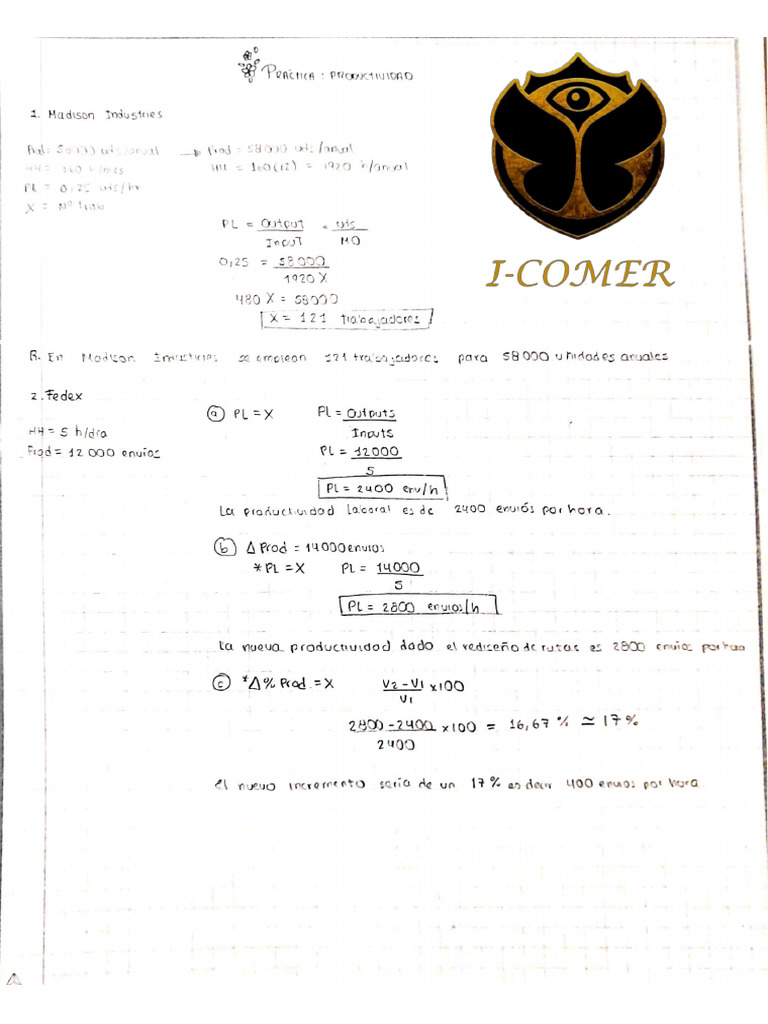 PRÁCTICA: PRODUCTIVIDAD
1. Madison Industries
Prod = 58000 uds/anual
HH = 160 h/mes
PL = 0,25 uds/hr
X = N° trab
→ Prod = 58000 uds/anual
HH = 160(12) = 1920 h/anual
PL = Output = uds
Input MO
0,25 = 58000
1920 X
480 X = 58000
X = 121 trabajadores
R. En Madison Industries se emplean 121 trabajadores para 58000 unidades anuales
I-COMER
2. Fedex
HH = 5 h/dia
Prod = 12 000 envíos
a PL = X PL = Outputs
Inputs
PL = 12000
5
PL = 2400 env/h
La productividad laboral es de 2400 envíos por hora.
b Δ Prod = 14000 envios
*PL = X PL = 14000
5
PL = 2800 envios/h
La nueva productividad dado el rediseño de rutas es 2800 envios por hora
c *Δ% Prod. = X V2 - V1 x100
V1
2800 - 2400 x100 = 16,67 % ≃ 17 %
2400
El nuevo incremento sería de un 17 % es decir 400 envios por hora